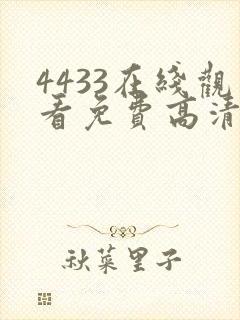 4433在綫觀
看免費高清
秋菜里子